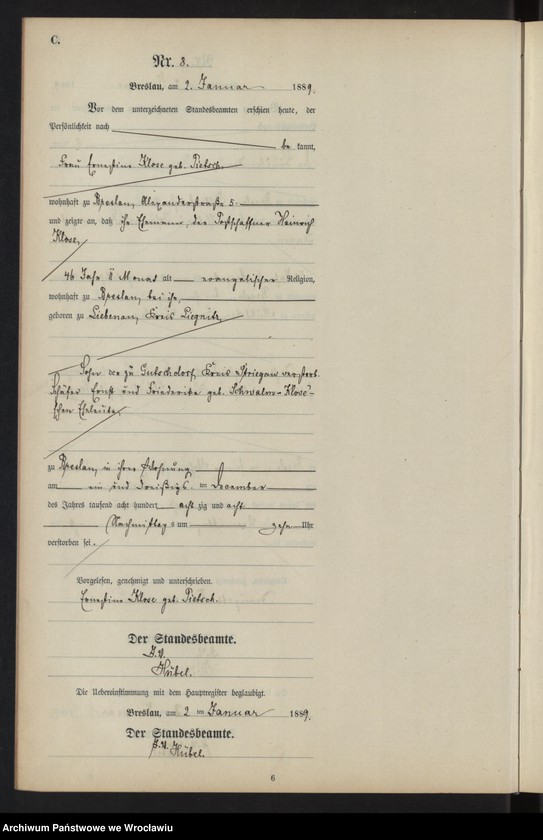 C.
Nr. 8.
Breslau, am 2. Januar 1889.
Vor dem unterzeichneten Standesbeamten erschien heute, der
Persönlichkeit nach
be kannt,
Frau Ernestine Klose geb. Pietsch,
wohnhaft zu Breslau, Alexanderstraße 5.
und zeigte an, daß ihr Ehemann, der Postschaffner Heinrich
Klose,
46 Jahr 8 Monat alt evangelischer Religion,
wohnhaft zu Breslau, bei ihr,
geboren zu Liebenau, Kreis Liegnitz,
Sohn der zu Gutschdorf, Kreis Striegau verstorb.
Schäfer Ernst und Friederike geb. Schwalm-Klose'-
schen Eheleute,
zu Breslau, in ihrer Wohnung
am ein und dreißigs. ten December
des Jahres tausend acht hundert acht zig und acht
Nachmittag s um zehn Uhr
verstorben sei.
Vorgelesen, genehmigt und unterschrieben.
Ernestine Klose geb. Pietsch.
Der Standesbeamte.
J. V.
Hübel.
Die Uebereinstimmung mit dem Hauptregister beglaubigt.
Breslau, am 2 ten Januar 1889.
Der Standesbeamte.
J. V. Hübel.
6
Archiwum Państwowe we Wrocławiu